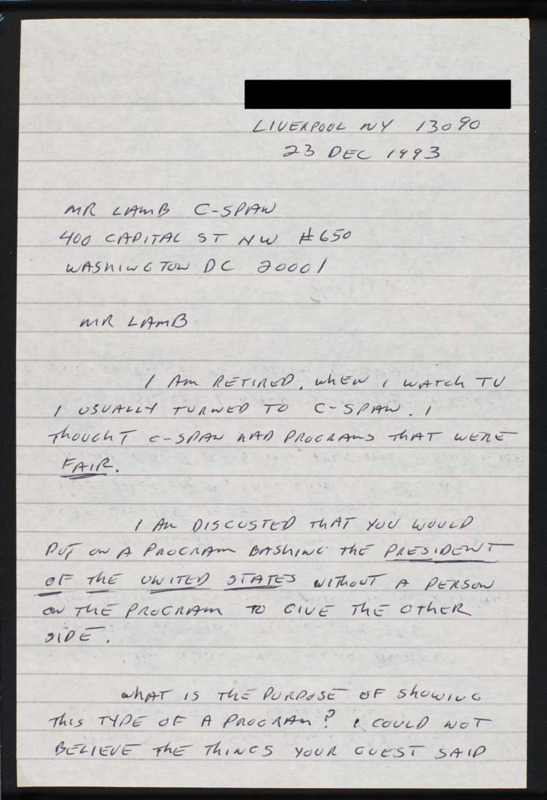 LIVERPOOL NY 13090
23 DEC 1993
MR LAMB C-SPAN
400 CAPITAL ST NW #650
WASHINGTON DC 20001
MR LAMB
I AM RETIRED, WHEN I WATCH TV
I USUALLY TURNED TO C-SPAN. I
THOUGHT C-SPAN HAD PROGRAMS THAT WERE
FAIR.
I AM DISCUSTED THAT YOU WOULD
PUT ON A PROGRAM BASHING THE PRESIDENT
OF THE UNITED STATES WITHOUT A PERSON
ON THE PROGRAM TO GIVE THE OTHER
SIDE.
WHAT IS THE PURPOSE OF SHOWING
THIS TYPE OF A PROGRAM? I COULD NOT
BELIEVE THE THINGS YOUR GUEST SAID